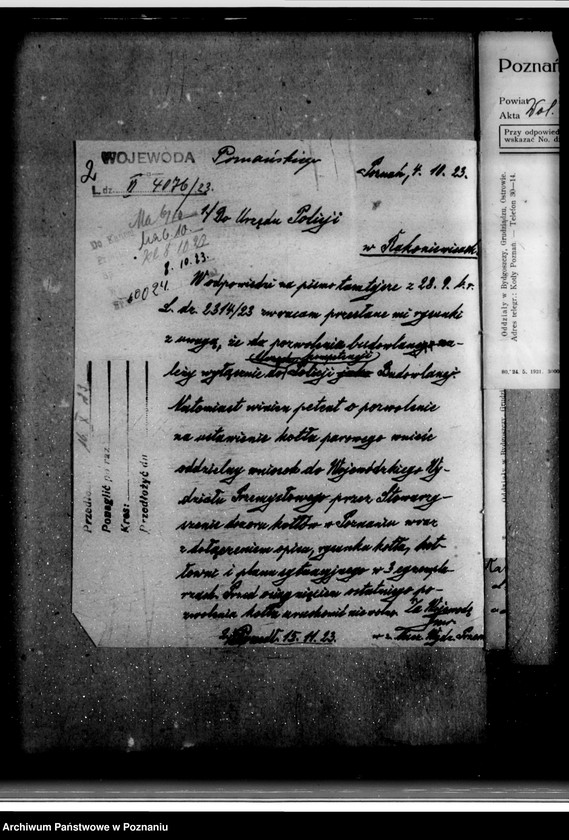 2
WOJEWODA Poznańskiego
L. dz. II 4076/23.
Poznań, 4. 10. 23.
1/ Do Urzędu Policji
w Rakoniewicach
8. 10. 23.
W odpowiedzi na pismo tamtejsze z 28. 9. b. r.
L. dz. 2314/23 zwracam przesłane mi rysunki
z uwagą, że do pozwolenia budowlanego na-
leży wyłącznie do Policji Budowlanej.
Natomiast winien petent o pozwolenie
na ustawienie kotła parowego wnieść
oddzielny wniosek do Wojewódzkiego Wy-
działu Przemysłowego przez Stowarzy-
szenie dozoru kotłów w Poznaniu wraz
z dołączeniem opisu, rysunku kotła, kot-
łowni i planu sytuacyjnego w 3 egzempla-
rzach. Przed osiągnięciem ostatniego po-
zwolenia kotła uruchomić nie wolno. Za Wojewodę
15. 11. 23.
Ponaglić po raz
Kres:
Przedłożyć dn
Poznań
Powiat Wol.
Akta
Przy odpowied
wskazać No. d
Oddziały w Bydgoszczy, Grudziądzu, Ostrowie.
Adres telegr.: Kotły Poznań — Telefon 30-14.
Archiwum Państwowe w Poznaniu